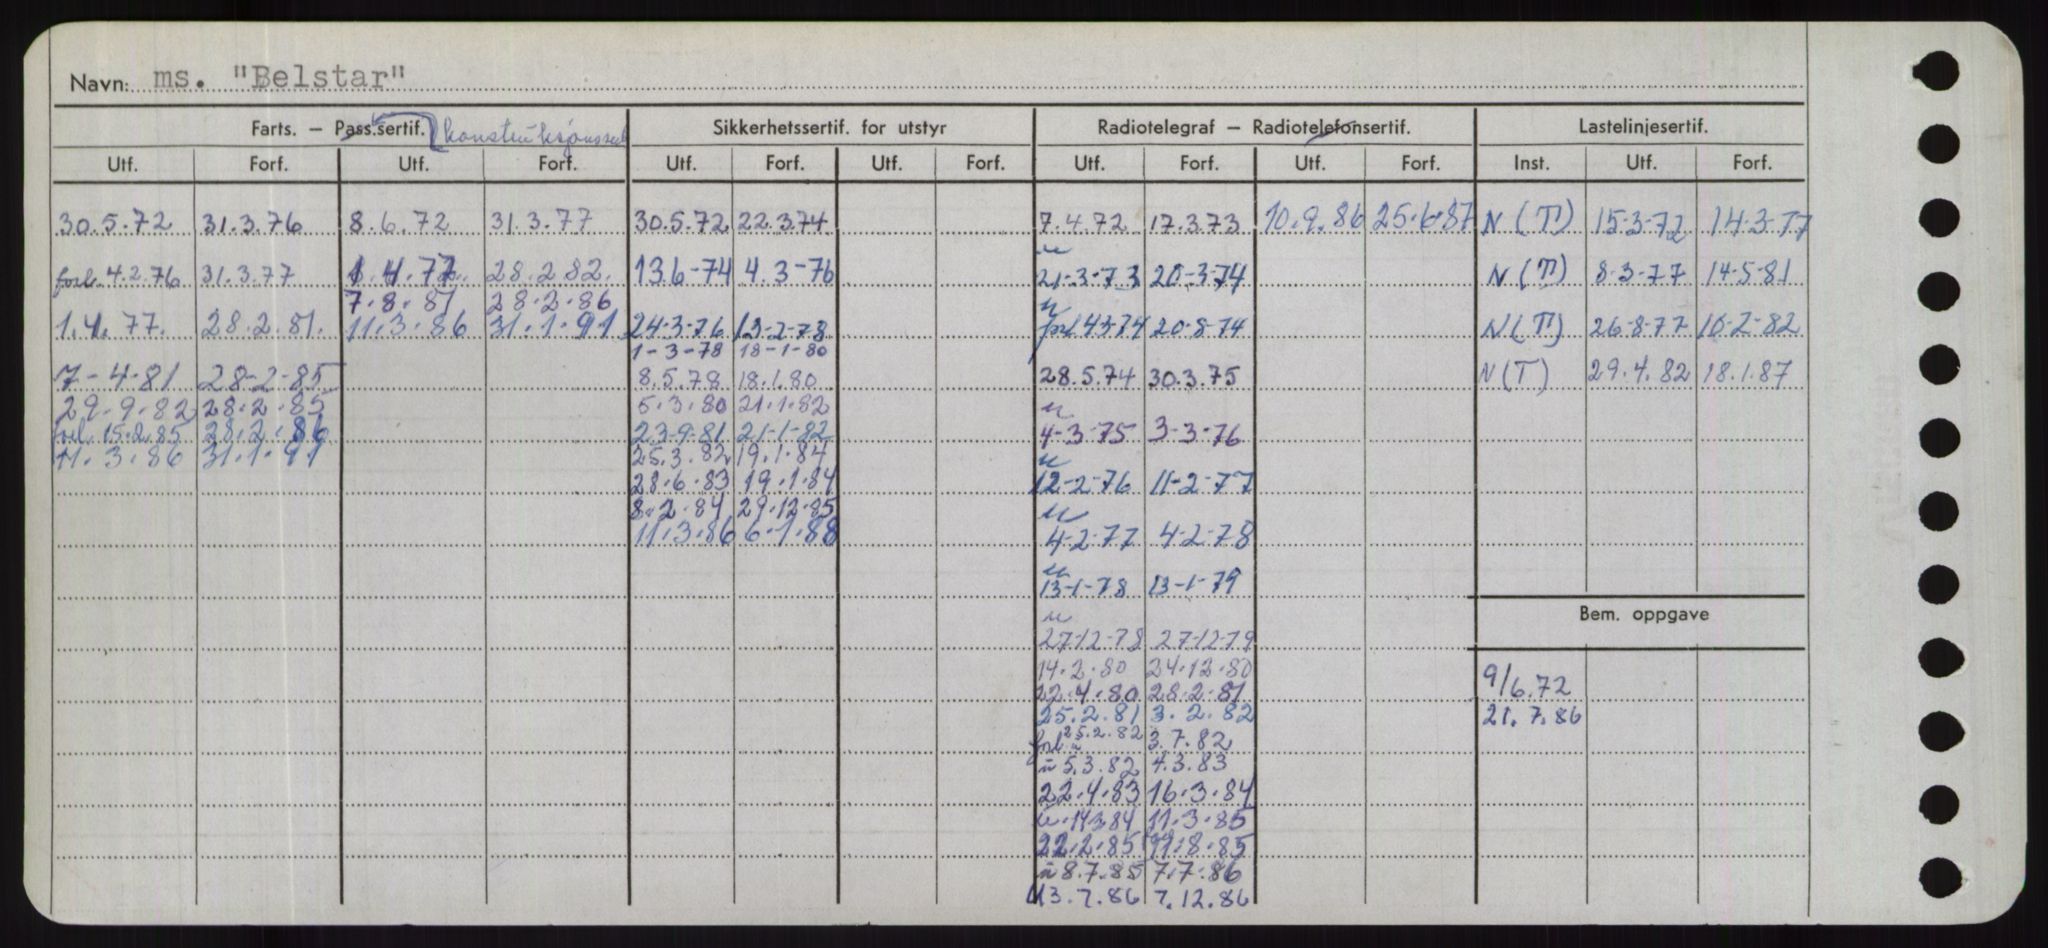 Navn: ms. "Belstar"
Farts. – Pass.sertif. konstruksjonssert Sikkerhetssertif. for utstyr Radiotelegraf – Radiotelefonsertif. Lastelinjesertif.
Utf. Forf. Utf. Forf. Utf. Forf. Utf. Forf. Utf. Forf. Utf. Forf. Inst. Utf. Forf.
30.5.72 31.3.76 8.6.72 31.3.77 30.5.72 22.3.74 7.4.72 17.3.73 10.9.86 25.6.87 N(T) 15-3-72 14-3-77
forl. 4.2.76 31.3.77 1.4.77. 28.2.82. 13.6-74 4.3-76 21-3-73 20-3-74 N(T) 8-3-77 14-5-81
7.8.81 28.2.86
1.4.77. 28.2.81. 11.3.86 31.1.91 24-3-76 12-2-78 forl 4374 20-8-74 N(T) 26-8-77 16-2-82
1-3-78 18-1-80
7-4-81 28-2-85 8.5.78 18.1.80 28.5.74 30.3.75 N(T) 29.4.82 18.1.87
29.9.82 28.2.85 5.3.80 21.1.82
forl. 15.2.85 28.2.86 23-9-81 21-1-82 4-3-75 3-3-76
11.3.86 31.1.91 25.3.82 19.1.84
28.6.83 19.1.84 12-2-76 11-2-77
8.2.84 29.12.85
11.3.86 6.1.88 4-2-77 4-2-78
13-1-78 13-1-79
Bem. oppgave
27-12-78 27-12-79
14.2.80 24.12.80
22.4.80 28.2.81 9/6.72
25.2.81 3.2.82 21.7.86
forl 25.2.82 3.7.82
u 5.3.82 4.3.83
22.4.83 16.3.84
u.14384 11.3.85
22.2.85 11.8.85
u 8.7.85 7.7.86
13.7.86 7.12.86